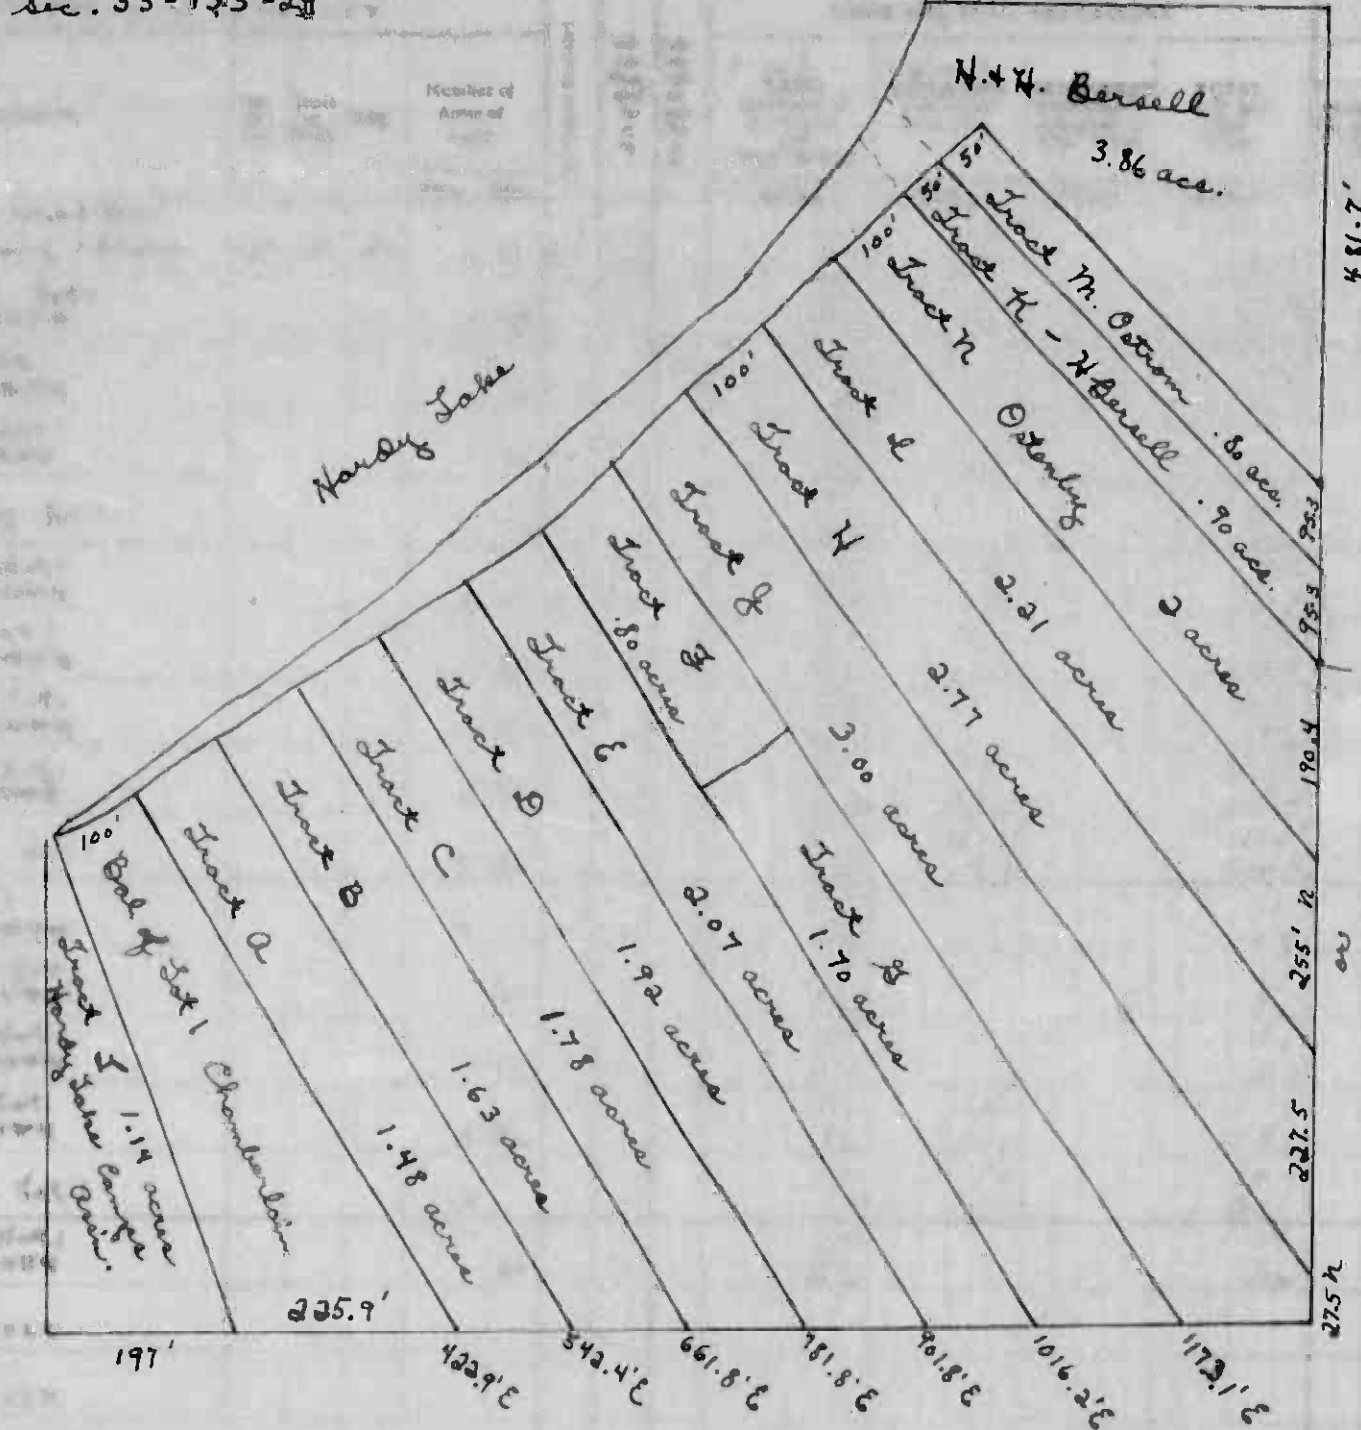 Sec. 33-133-2
N. + H. Bersell
3.86 acs.
481.7'
50'
Tract M. Ostrom
.80 acs.
50'
Tract K - H Bersell
.90 acs.
100'
Tract N
Ostenby
2 acres
Tract I
2.21 acres
100'
Tract H
2.77 acres
Tract J
3.00 acres
Tract F
.80 acres
Tract G
1.70 acres
Tract E
2.07 acres
Tract D
1.92 acres
Tract C
1.78 acres
Tract B
1.63 acres
Tract A
1.48 acres
100'
Bal of Lot 1 Chamberlain
Tract L 1.14 acres
Hardy Lake Camps
Assn.
Hardy Lake
95.3
95.3
190.4
255' N
227.5
27.5 N
197'
225.9'
422.9'E
542.4'E
661.8'E
781.8'E
901.8'E
1016.2'E
1173.1'E
Number of
Acres of